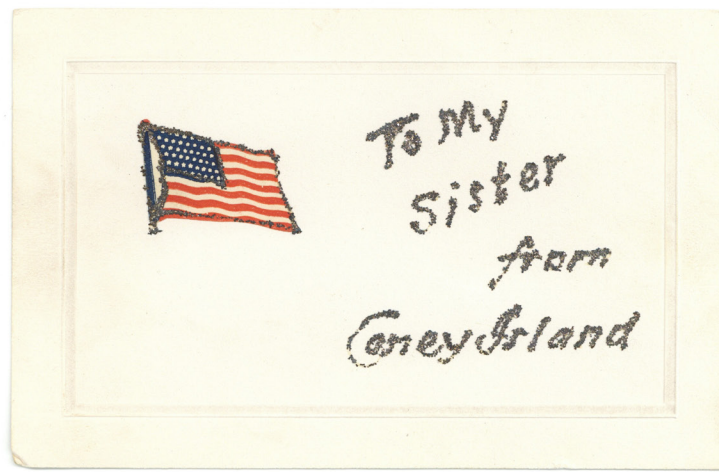 To My
Sister
from
Coney Island